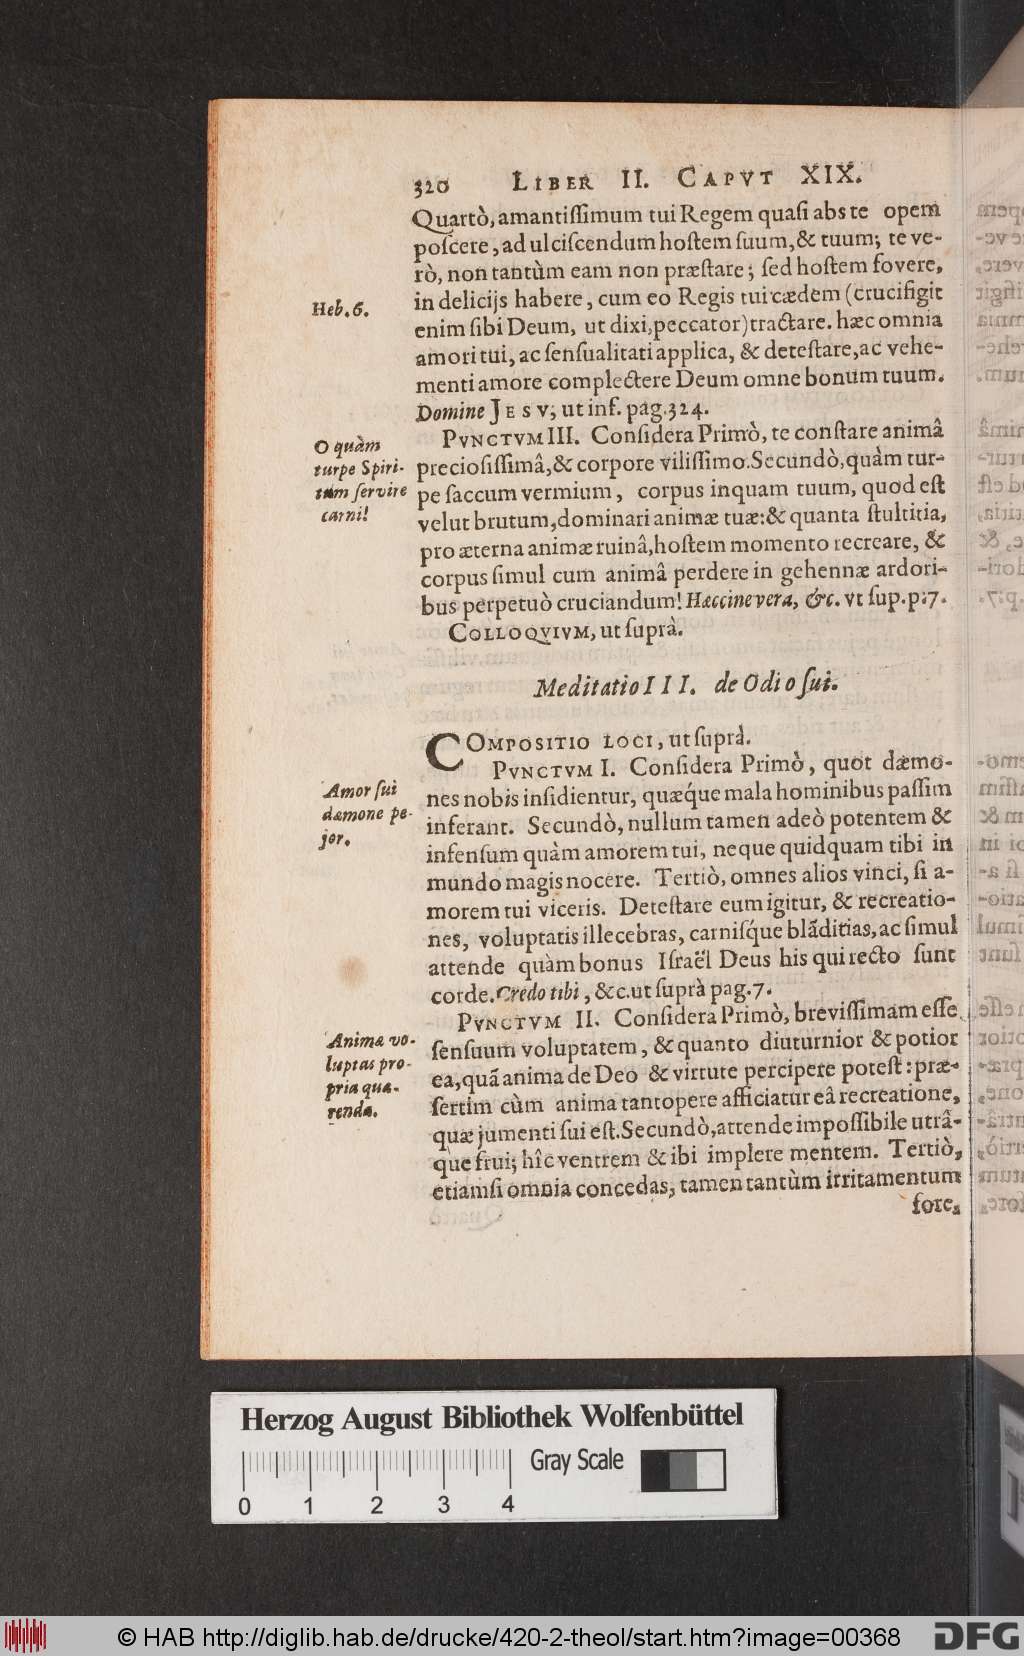 320 LIBER II. CAPVT XIX.
Quartò, amantissimum tui Regem quasi abs te opem
poscere, ad ulciscendum hostem suum, & tuum; te ve-
rò, non tantùm eam non præstare; sed hostem fovere,
in delicijs habere, cum eo Regis tui cædem (crucifigit
Heb. 6.
enim sibi Deum, ut dixi, peccator) tractare. hæc omnia
amori tui, ac sensualitati applica, & detestare, ac vehe-
menti amore complectere Deum omne bonum tuum.
Domine JESV, ut inf. pag. 324.
PVNCTVM III. Considera Primò, te constare animâ
O quàm
turpe Spiri-
tum servire
carni!
preciosissimâ, & corpore vilissimo. Secundò, quàm tur-
pe saccum vermium, corpus inquam tuum, quod est
velut brutum, dominari animæ tuæ: & quanta stultitia,
pro æterna animæ ruinâ, hostem momento recreare, &
corpus simul cum animâ perdere in gehennæ ardori-
bus perpetuò cruciandum! Hæccine vera, &c. vt sup. p. 7.
COLLOQVIVM, ut suprà.
Meditatio III. de Odio sui.
COMPOSITIO LOCI, ut suprà.
PVNCTVM I. Considera Primò, quot dæmo-
Amor sui
dæmone pe-
jor.
nes nobis insidientur, quæq́ue mala hominibus passim
inferant. Secundò, nullum tamen adeò potentem &
infensum quàm amorem tui, neque quidquam tibi in
mundo magis nocere. Tertiò, omnes alios vinci, si a-
morem tui viceris. Detestare eum igitur, & recreatio-
nes, voluptatis illecebras, carnisq́ue blãditias, ac simul
attende quàm bonus Israël Deus his qui recto sunt
corde. Credo tibi, &c. ut suprà pag. 7.
PVNCTVM II. Considera Primò, brevissimam esse
Animæ vo-
luptas pro-
pria quæ-
renda.
sensuum voluptatem, & quanto diuturnior & potior
ea, quã anima de Deo & virtute percipere potest: præ-
sertim cùm anima tantopere afficiatur eâ recreatione,
quæ jumenti sui est. Secundò, attende impossibile utrâ-
que frui; hîc ventrem & ibi implere mentem. Tertiò,
etiamsi omnia concedas, tamen tantùm irritamentum
fore,
Herzog August Bibliothek Wolfenbüttel
0 1 2 3 4
Gray Scale
© HAB http://diglib.hab.de/drucke/420-2-theol/start.htm?image=00368
DFG